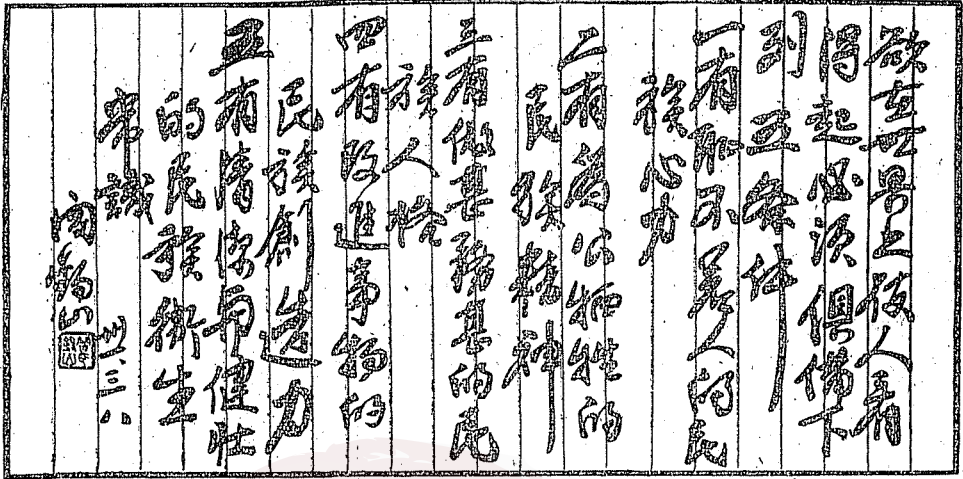 欲在世界上被人看
得起必須俱備下
列五条件
一有耻不若人的民
族心力
二有為公牺牲的
民族精神
三有做甚務甚的民
族人格
四有改進事物的
民族創造力
五有清潔而健壯
的民族衛生
常識 卅三八
閻錫山